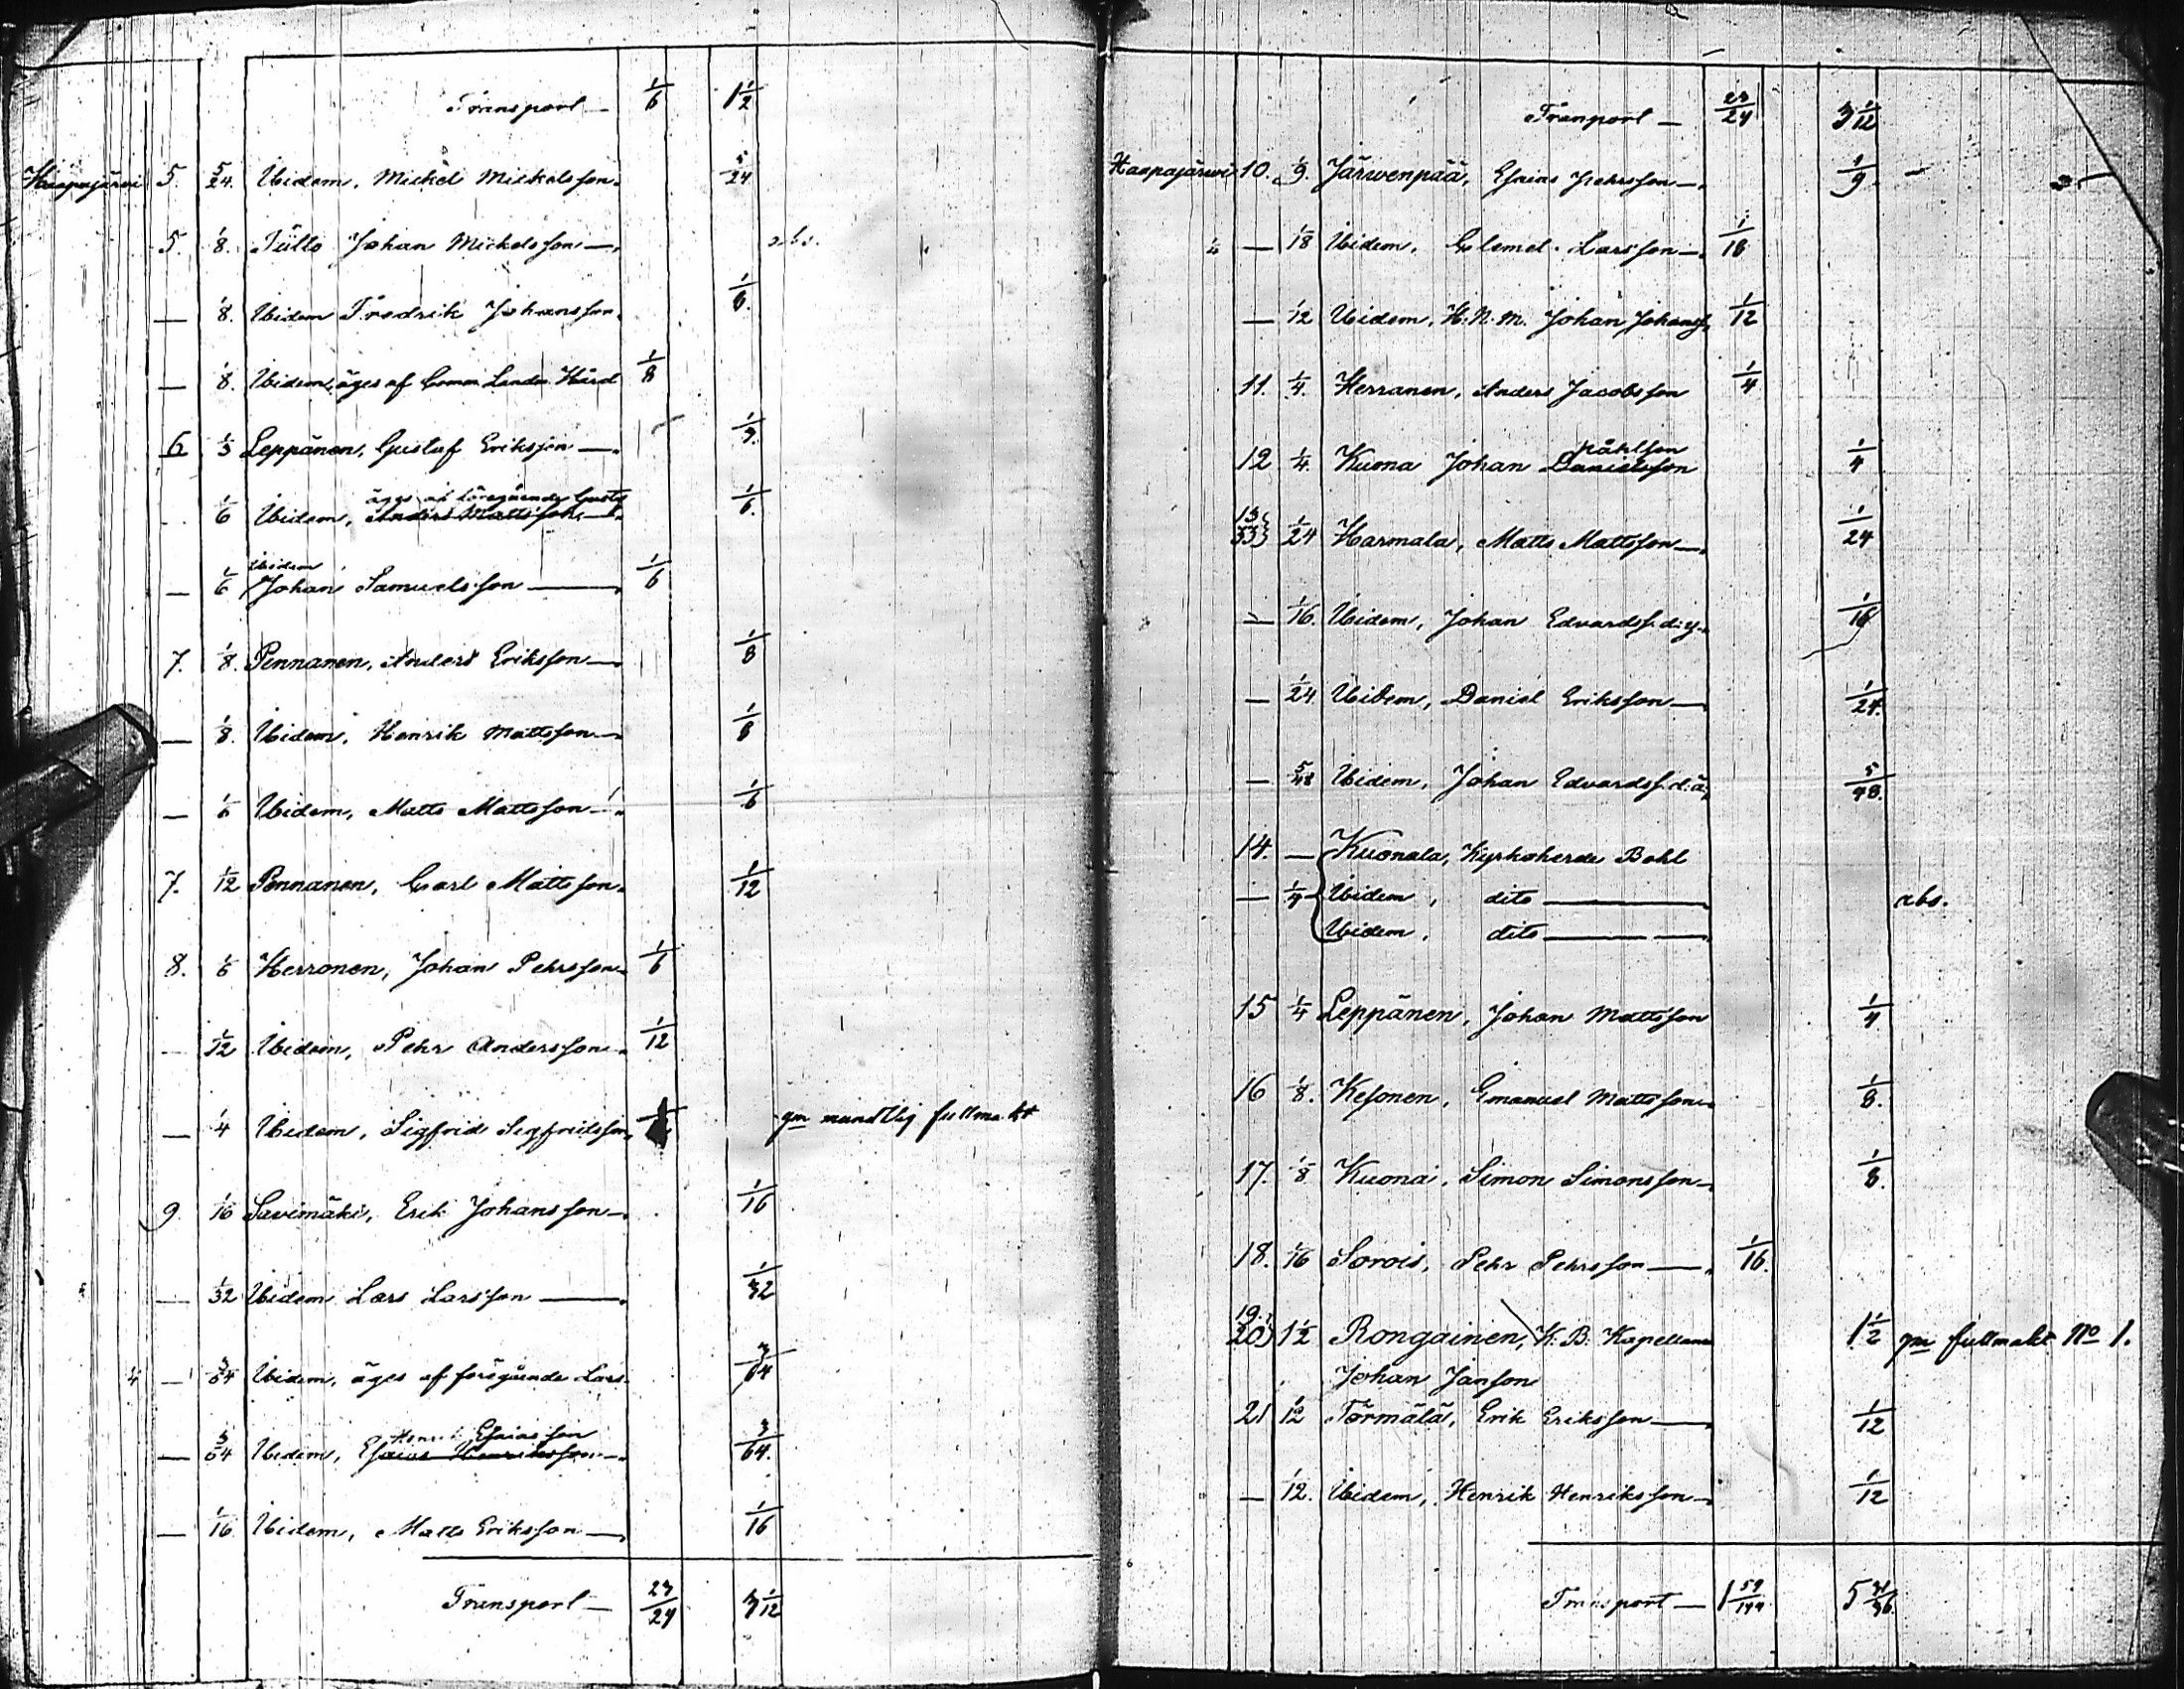 Transport — 1/6 1 1/2
Haapajärvi 5. 5/24. Ibidem, Mickel Mickelsson. 5/24
5. 1/8. Tiitto Johan Mickelsson —. abs.
— 1/8. Ibidem Fredrik Johansson. 1/8.
— 1/8. Ibidem, äges af Landm Hård 1/8
6 1/3 Leppänen, Gustaf Eriksson —. 1/3.
äges af föregående Gustaf
1/6 Ibidem, Anders Mattsson —. 1/6.
Ibidem
— 1/6 Johan Samuelsson —. 1/6
7. 1/8. Pennanen, Anders Eriksson —. 1/8
— 1/8. Ibidem, Henrik Mattsson —. 1/8
— 1/6 Ibidem, Matts Mattsson —. 1/6
7. 1/12 Pennanen, Carl Mattsson. 1/12
8. 1/6 Herronen, Johan Pehrsson. 1/6
— 1/12 Ibidem, Pehr Andersson. 1/12
— 1/4 Ibidem, Sigfrid Sigfridsson, gm mundtlig fullmakt
9. 1/16 Savimäki, Erik Johansson —. 1/16
— 1/32 Ibidem Lars Larsson —. 1/32
4 — 3/64 Ibidem, äges af föregående Lars. 3/64
Henrik Esaiasson
— 3/64 Ibidem, Esaias Henriksson —. 3/64.
— 1/16 Ibidem, Matts Eriksson —. 1/16
Transport — 23/24 3 1/12
Transport — 23/24 3 1/12
Haapajärvi 10. 1/9. Järwenpää, Esaias Pehrsson —. 1/9. —
— 1/18 Ibidem, Clemet Larsson —. 1/18
— 1/12 Ibidem, H. N. m. Johan Johanss. 1/12
11. 1/4. Herranen, Anders Jacobsson 1/4
Påhlson
12 1/4. Kuona Johan Danielsson 1/4
13 33} 1/24 Harmala, Matts Mattsson —. 1/24
— 1/16. Ibidem, Johan Edvardss. d. y. 1/16
— 1/24 Ibidem, Daniel Eriksson — 1/24.
— 5/48 Ibidem, Johan Edvardss. d. ä. 5/48.
14. — Kuonala, Kyrkoherde Bohl
— 1/4 Ibidem, dito — abs.
Ibidem, dito —
15 1/4 Leppänen, Johan Mattsson 1/4.
16 1/8. Kesonen, Emanuel Mattsson. 1/8.
17. 1/8 Kuona, Simon Simonsson —. 1/8.
18. 1/16 Sorois, Pehr Pehrsson —. 1/16.
19. 20} 1 1/2 Rongainen, K. B. Kapellans 1 1/2 gm fullmakt No 1.
Johan Janson
21 1/12 Törmälä, Erik Eriksson —. 1/12
— 1/12. Ibidem, Henrik Henriksson —. 1/12
Transport — 1 59/144 5 31/36.